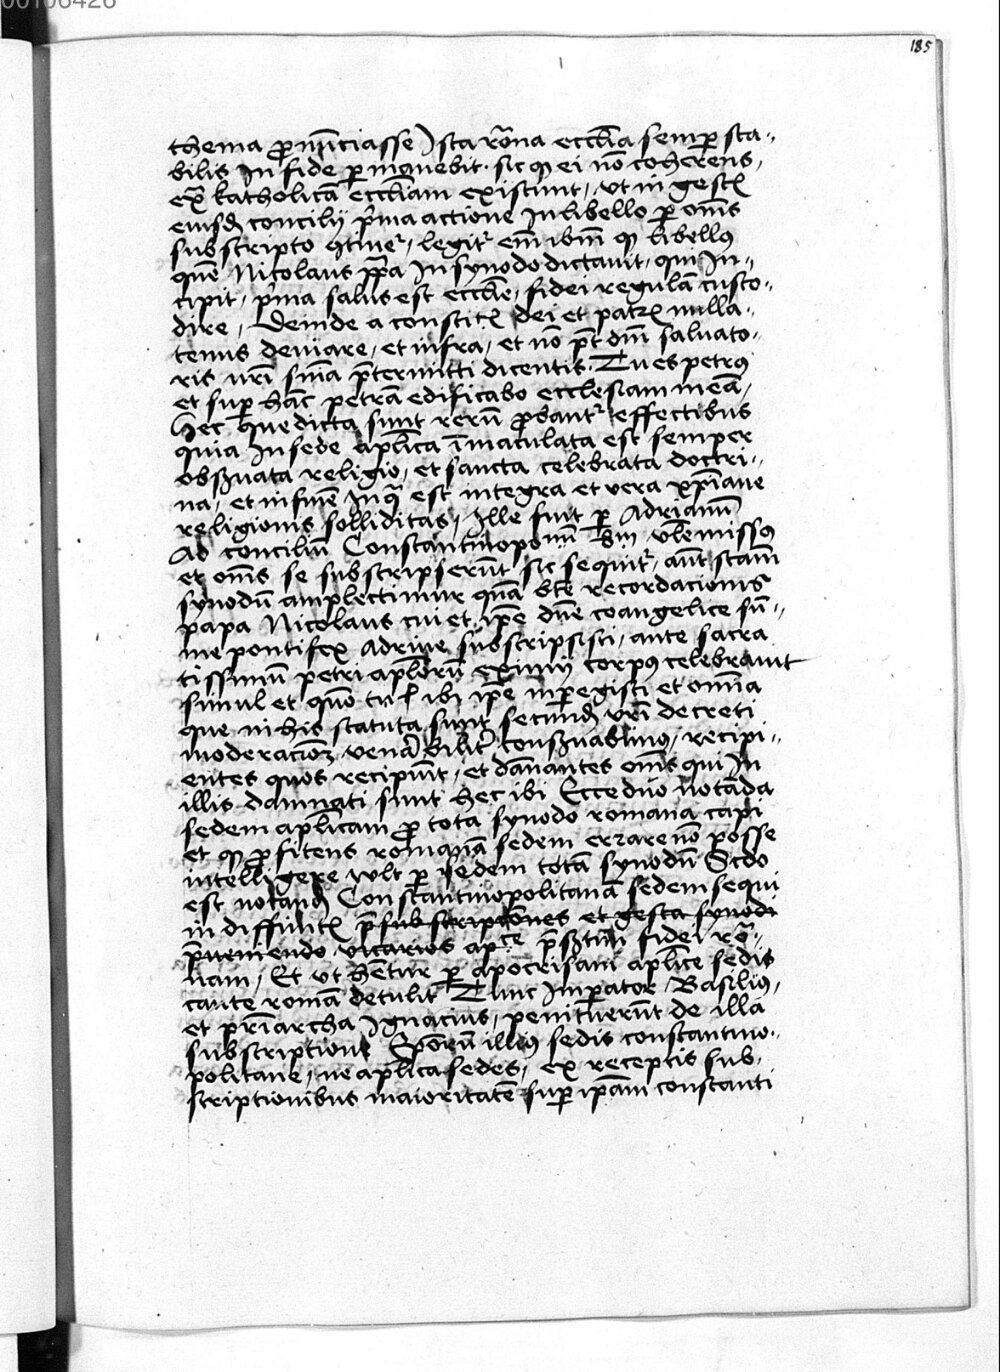 00106426
185
thema p̱nūciasse Ista rōna ecclīa semp̱ sta-
bilis In fide p̱manebit. sic ꝙ ei nō coherens,
ex̄ katholicā eccliam existunt, vt in gestꝭ
eiusdꝫ concilij p̄ma actione In libello p̱ om̄s
subscripto ꝯtinet᷑, legit᷑ em̄ ibm̄ ꝙ libellꝰ
quē Nicolaus pp̄a In synodo dictauit, qui In-
cipit, p̄ma salus est ecclīe, fidei regulā custo-
dire, Deinde a constitꝭ dei et patrꝭ nulla-
tenus deuiare, et infra, et nō p̄t dn̄i saluato-
ris nr̄i sn̄ia p̄termitti dicentis. Tu es petrꝰ
et sup̱ hāc petrā edificabo ecclesiam meā,
Hec que dicta sunt rerū p̱bant᷑ effectibus
quia In sede ap̄lica īmaculata est semper
obẜuata religio, et sancta celebrata doctri-
na, et in fine In qͣ est integra et vera xp̄iane
religionis solliditas, Ille fuit p̱ Adrianū
Ad conciliū Constantinopōnū missꝰ
et om̄s se subscripserūt sic sequit᷑, sctām
synodū amplectimur quā bt̄e recordacionis
papa Nicolaus cui et ip̄e dn̄e coangelice sū-
me pontifex Adriane subscripsisti, ante sacra
tissimū petri ap̄lorū eximij corpꝰ celebrauit
simul et quō tu ibi ip̄e inp̱egisti et om̄ia
que in his statuta sunt secundꝫ vr̄i decreti
moderacionē venābilit᷑ conẜuabimꝰ, recipi-
entes quos recipiūt, et dānantes om̄s qui In
illis damnati sunt hec ibi Ecce duo notāda
sedem ap̄licam p̱ tota synodo romana capi
et ꝙ p̱fitens romanā sedem errare nō posse
intelligere vult p̱ sedem totā synodū Scdo
est notandꝫ Constantinopolitanā sedem sequi
in diffinitꝭ p̄subscriptōnes et gesta synodi
p̄ueniendo vicarios ap̄ce p̄ẜtim fidei rō-
nam, Et vt hētur p̱ apocrisarij ap̄lice sedis
caute romā detulit Tunc Imp̱ator Basiliꝰ,
et pr̄iarcha Ignacius, penituerūt de illa
subscriptione Ep̄orū illiꝰ sedis constantino-
politane, ne ap̄lica sedes, ex receptis sub-
scriptionibus maioritatē sup̱ ip̄am constanti